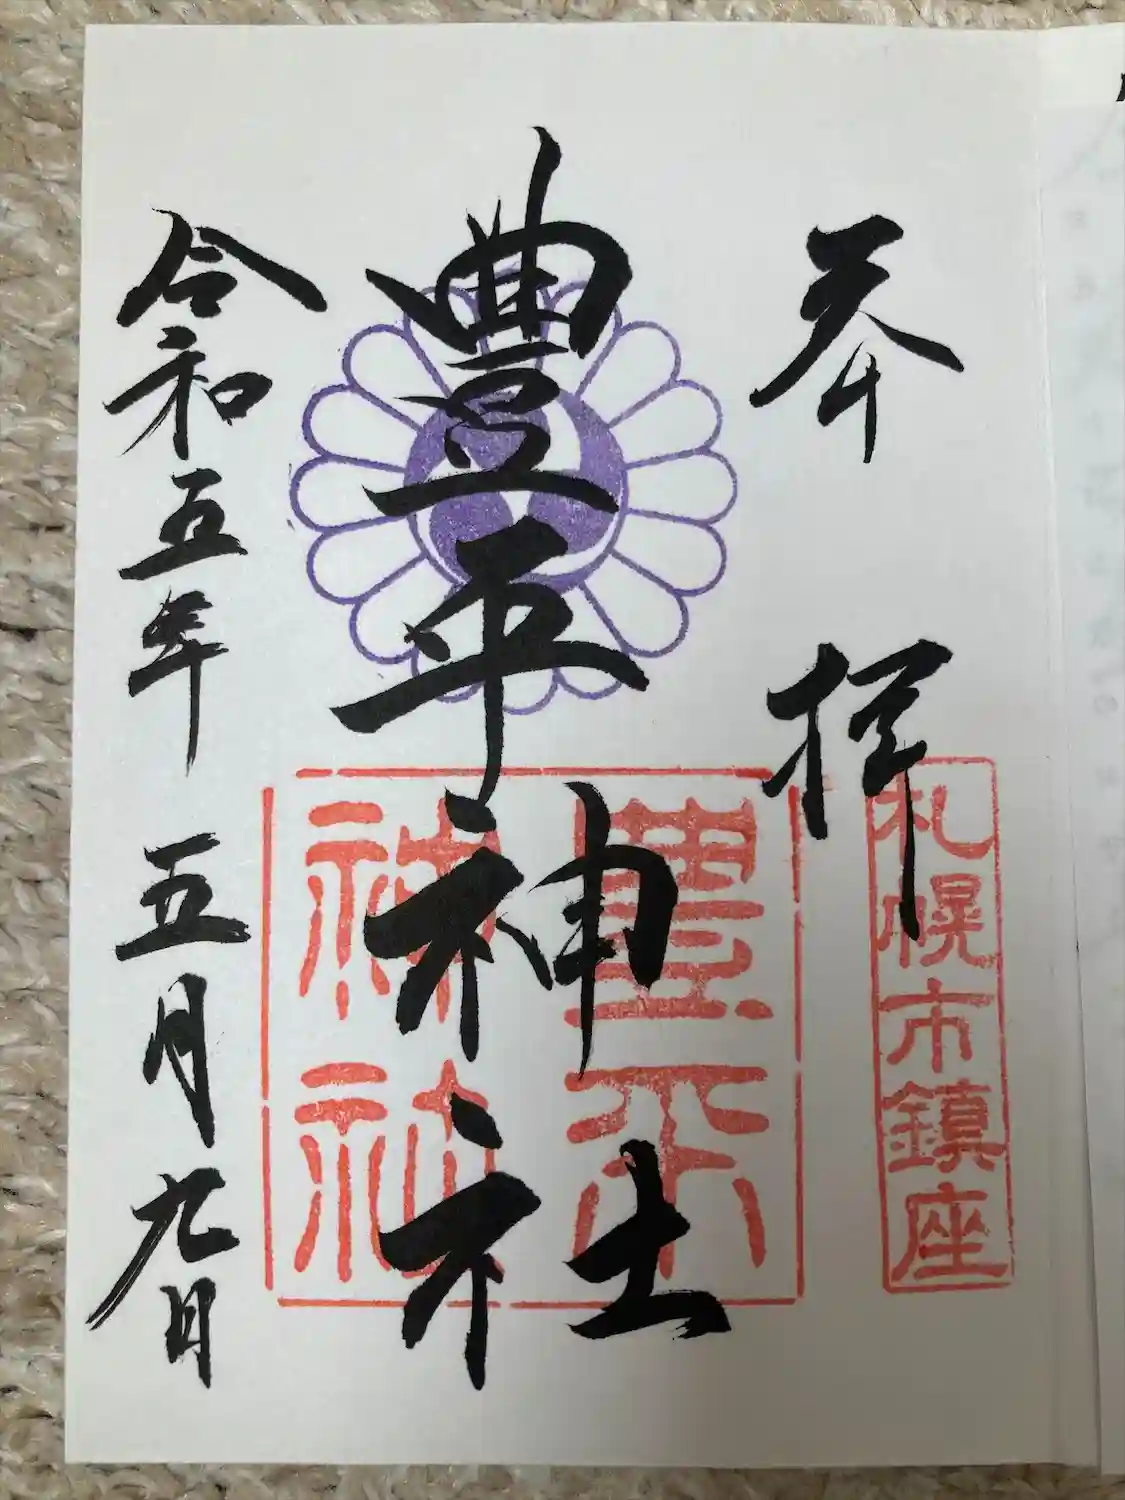 奉拝
札幌市鎮座
豊平神社
豊平
神社
令和五年 五月九日